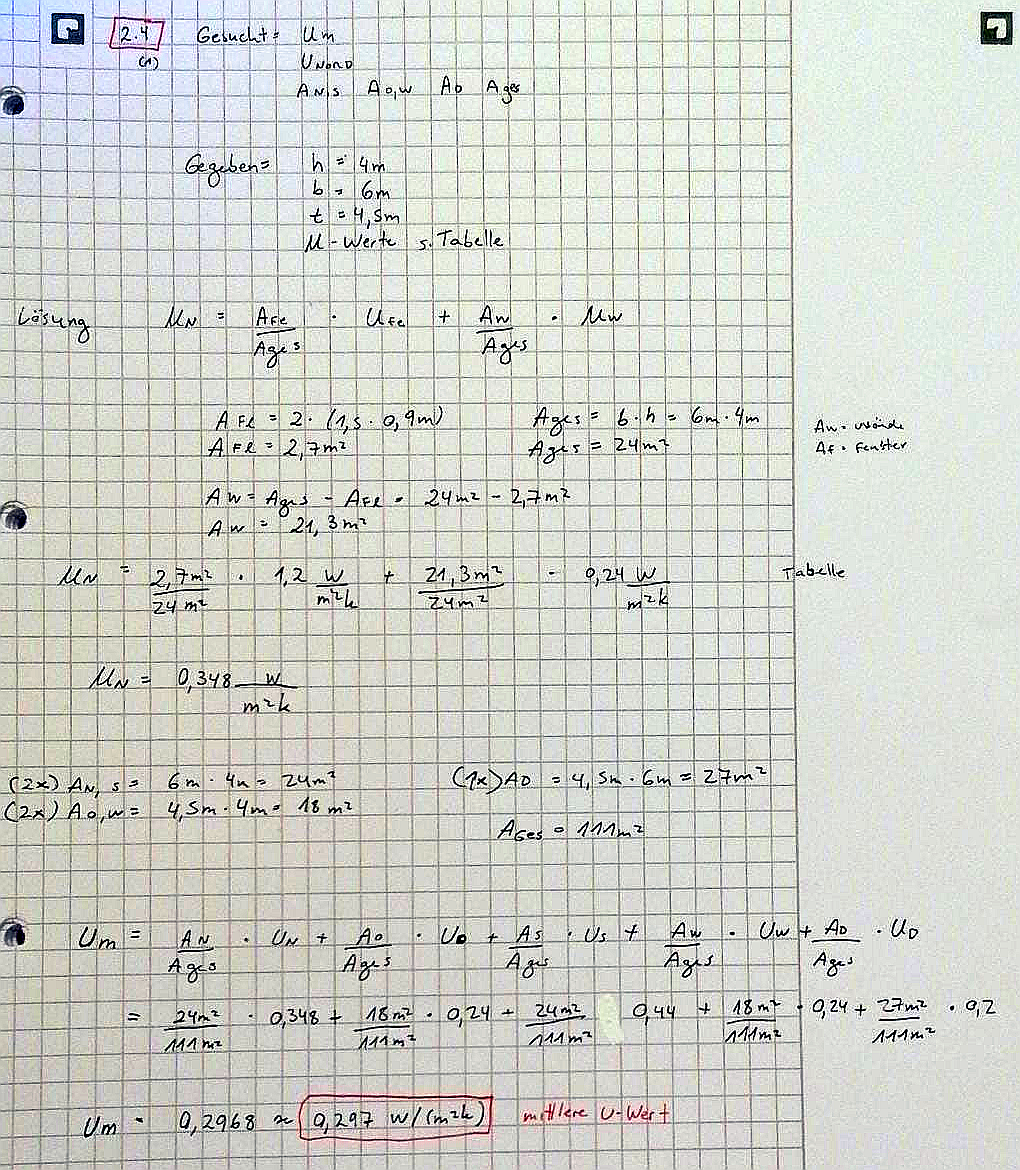 2.4 Gesucht= Um
(1) UNORD
AN,S AO,W AD Ages
Gegeben= h = 4m
b = 6m
t = 4,5m
U-Werte s. Tabelle
Lösung UN = AFe/Ages · UFe + Aw/Ages · Uw
AFe = 2· (1,5 · 0,9m) Ages = b·h = 6m·4m
AFe = 2,7m² Ages = 24m²
Aw = Wände
Af = Fenster
Aw = Ages - AFe = 24m² - 2,7m²
Aw = 21,3m²
UN = 2,7m²/24m² · 1,2 W/m²k + 21,3m²/24m² · 0,24 W/m²k Tabelle
UN = 0,348 W/m²k
(2x) AN,S = 6m · 4m = 24m² (1x) AD = 4,5m·6m = 27m²
(2x) AO,W = 4,5m·4m = 18m²
AGes = 111m²
Um = AN/Ages · UN + AO/Ages · UO + AS/Ages · US + AW/Ages · UW + AD/Ages · UD
= 24m²/111m² · 0,348 + 18m²/111m² · 0,24 + 24m²/111m² 0,44 + 18m²/111m² · 0,24 + 27m²/111m² · 0,2
Um = 0,2968 ≈ 0,297 W/(m²k) mittlere U-Wert